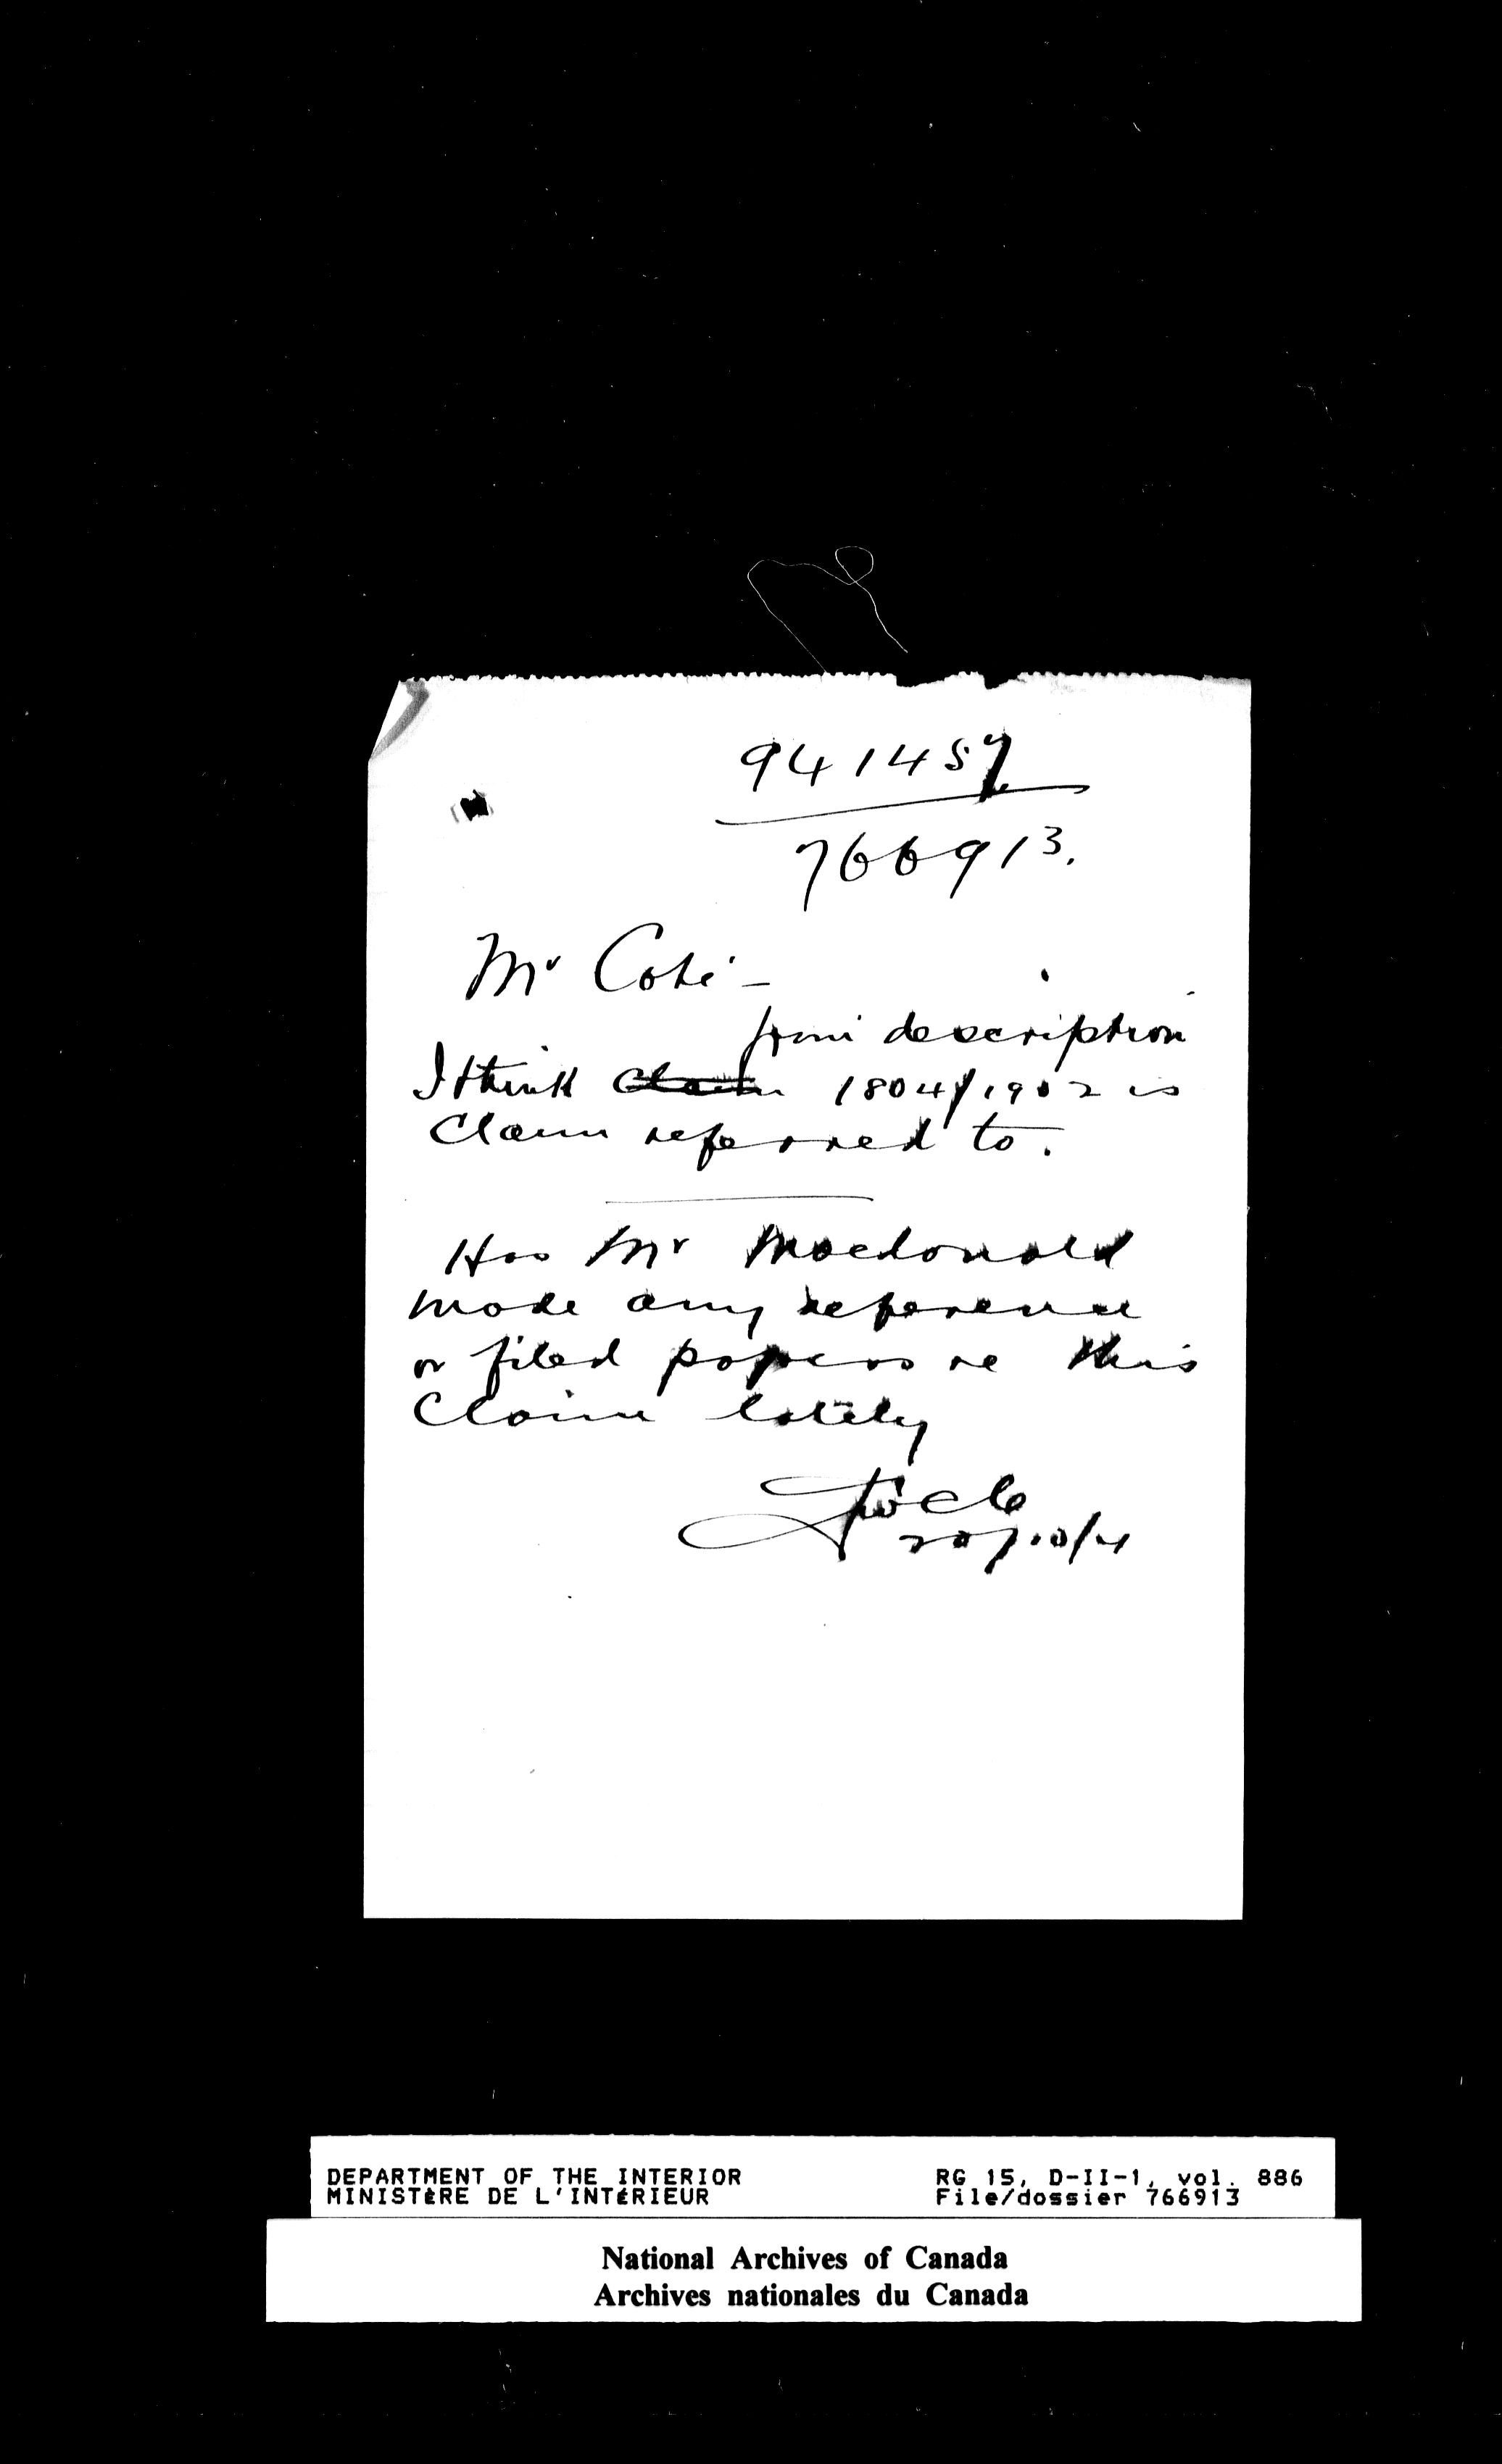 941457
766913.
Mr Coté -
from description
I think Claim 1804/1902 is
Claim referred to.
Has Mr Macdonald
made any reference
or filed papers re this
Claim lately
20/10/4
DEPARTMENT OF THE INTERIOR
MINISTÈRE DE L'INTÉRIEUR
RG 15, D-II-1, vol. 886
File/dossier 766913
National Archives of Canada
Archives nationales du Canada